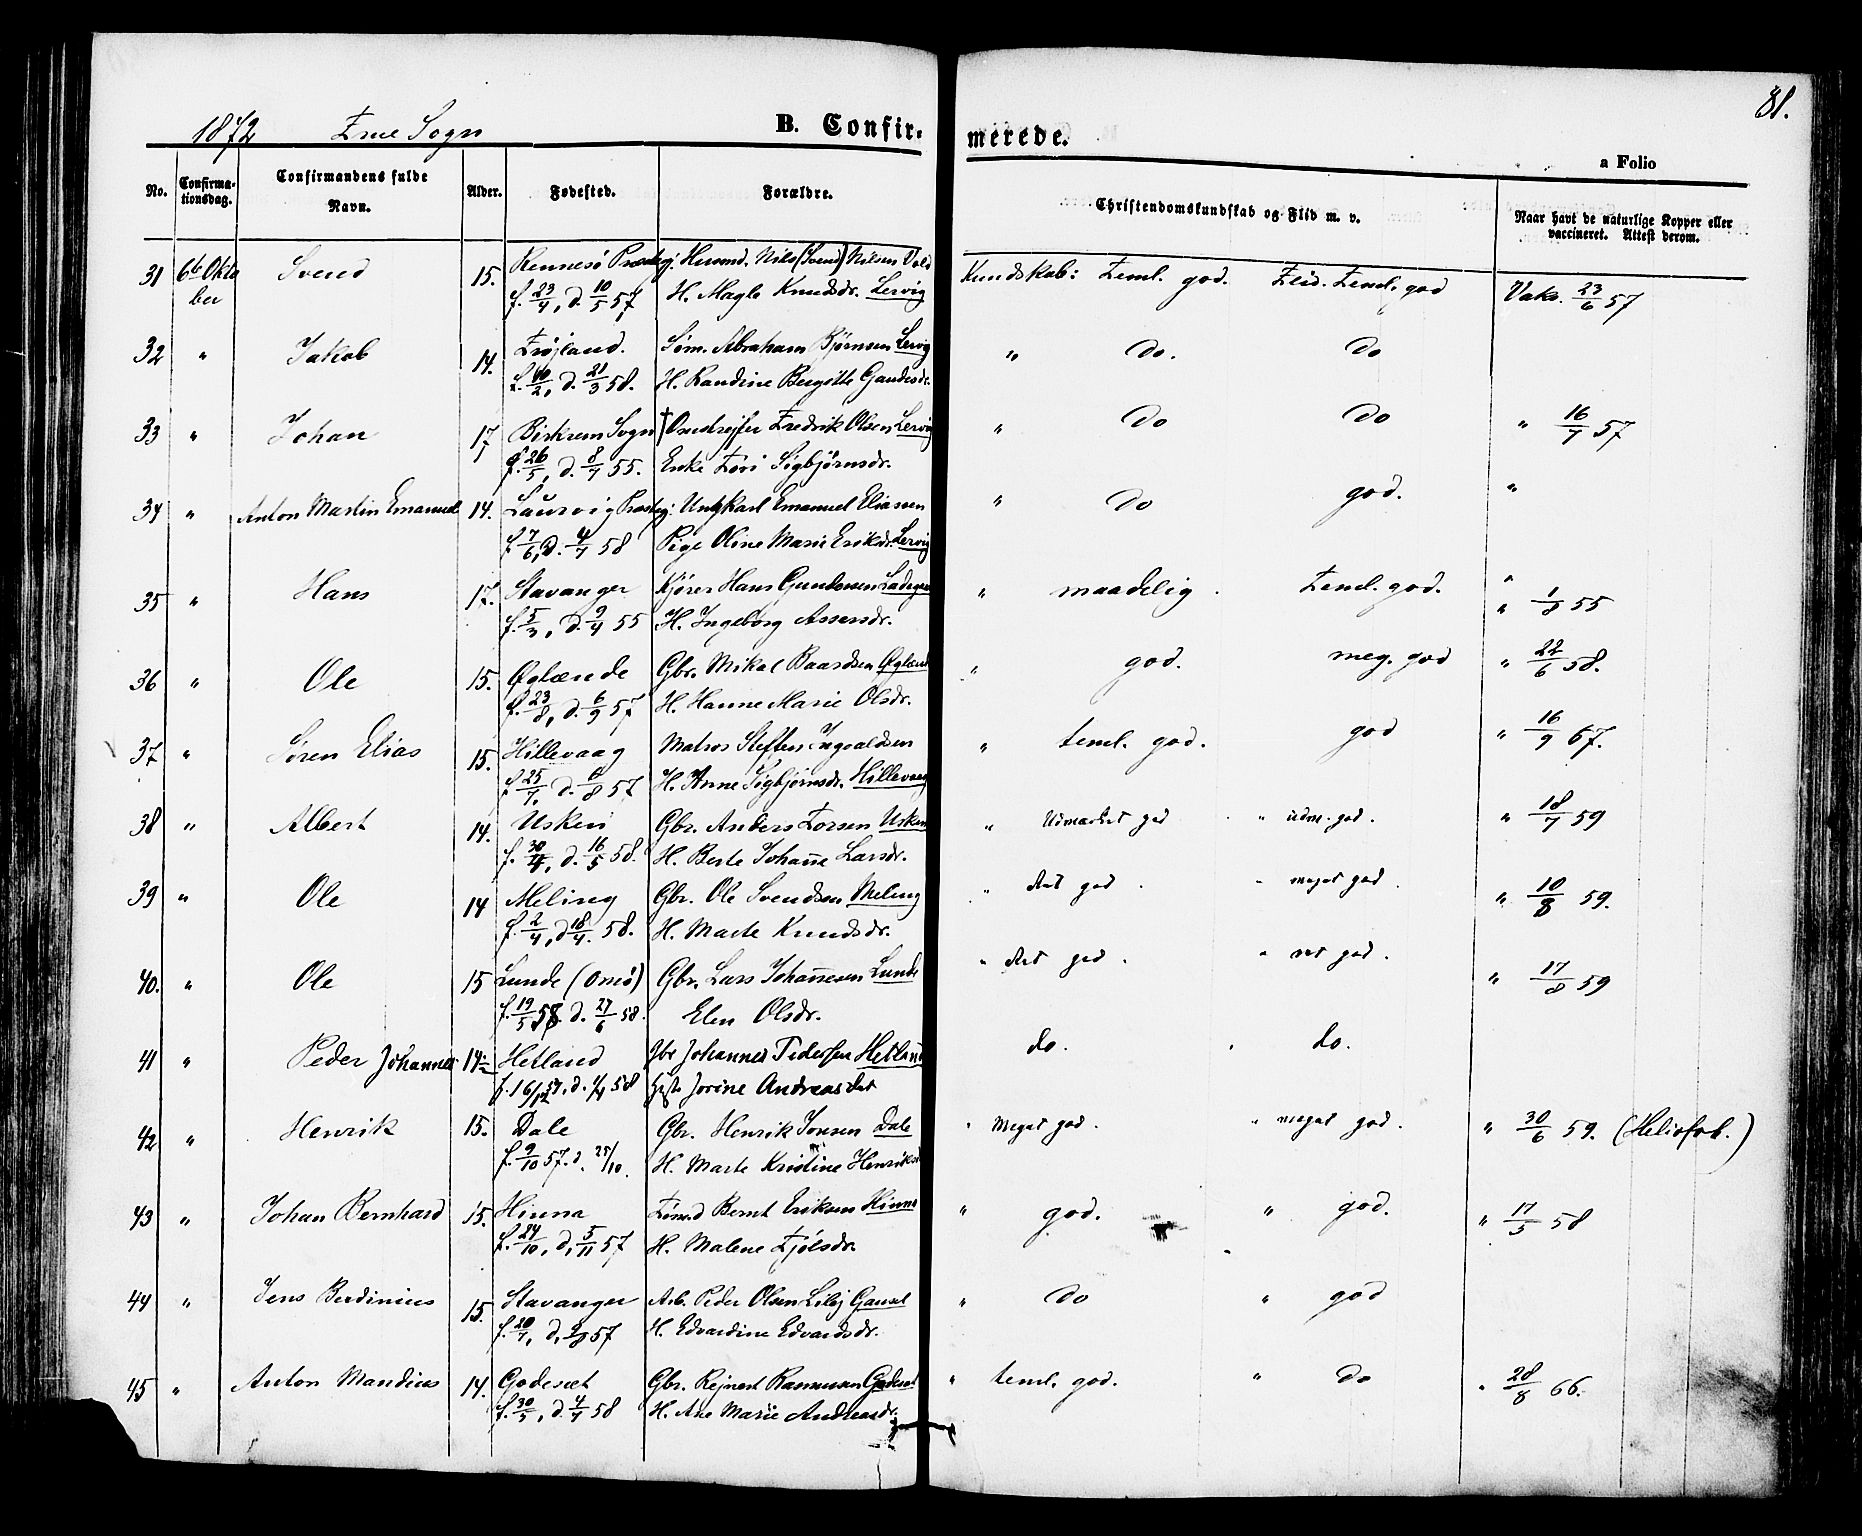 81.
1872 Frue Sogn B. Confirmerede.
a Folio
No. Confirmationsdag. Confirmandens fulde Navn. Alder. Fødested. Forældre. Christendomskundskab og Flid m. v. Naar havt de naturlige Kopper eller vaccineret. Attest derom.
31 6te Oktober Svend 15. Rennesø Præsteg: Nils (Svend) Nilsen Kundskab: Teml. god. Flid. Teml. god Vaks. 23/6 57
f. 23/4, d. 10/5 57 H. Magla Knudsdr. Lervig
32 " Jakob 14. Frøjland. Søm. Abraham Bjørnsen Lervig " do. do
f. 10/2, d. 21/3 58. H. Randine Bergitte
33 " Johan 17 Birkrem Sogn † Fredrik Olsen Lervig " do do " 16/7 57
f. 26/5, d. 8/7 55. Enke Sigbjørnsdr.
34 " Anton Martin Emanuel 14. Laurvig Præsteg: Ungkarl Emanuel Eliassen " do god. "
f. 7/6, d. 4/7 58 Pige Oline Marie Eriksdr. Lervig
35 " Hans 17. Stavanger Kjører Hans Gundersen " maadelig Teml. god. " 1/8 55
f. 5/3, d. 9/4 55 H. Ingeborg Assersdr.
36 " Ole 15. Øglænde Gbr. Mikal Baardsen Øglænd " god. meg. god " 22/6 58.
f. 23/8, d. 6/9 57 H. Hanne Marie Olsdr.
37 " Søren Elias 15. Hillevaag Matros Steffen Ingvaldsen " teml. god. god " 16/9 67.
f. 25/7, d. /8 57 H. Anne Sigbjørnsdr. Hillevaag
38 " Albert 14. Usken Gbr. Anders Torsen Usken " Udmærket god " udm. god. " 18/7 59
f. 30/4, d. 16/5 58. H. Berte Johanne Larsdr.
39 " Ole 14 Meling Gbr. Ole Svendsen Meling " god " meget god " 10/8 59.
f. 2/4, d. 18/4. 58. H. Marte Knudsdr.
40. " Ole 15 Lunde (Omø) Gbr. Lars Johannesen Lunde " god. " god. " 17/8 59
f. 19/5 58. d. 27/6 58. Elen Olsdr.
41 " Peder Johannes 14 Hetland Gbr Johannes Pedersen Hetland do. do.
f. 16/12 57. d. 1/4 58 Jorine Andreasdat
42 " Henrik 15. Dale Gbr. Henrik Jonsen Dale " Meget god. " meget god. " 30/6 59. (Heliofob.)
f. 9/10 57. d. 25/10. H. Marte Kristine
43 " Johan Bernhard 15. Hinna Bernt Eriksen Hinna " god. " god. " 17/5 58
f. 24/10, d. 5/11 57 H. Malene
44 " Jens Berdinius 15. Stavanger Arb. Peder Olsen Gausel " do " god
f. 20/7, d. 9/8 57 H. Edvardine Edvardsdr.
45 " Anton Mandius 14. Godeset Gbr. Rejnert Rasmusen Godeset " teml. god. " do " 28/8 66.
f. 30/5, d. 4/7 58 H. Ane Marie Andreasdr.